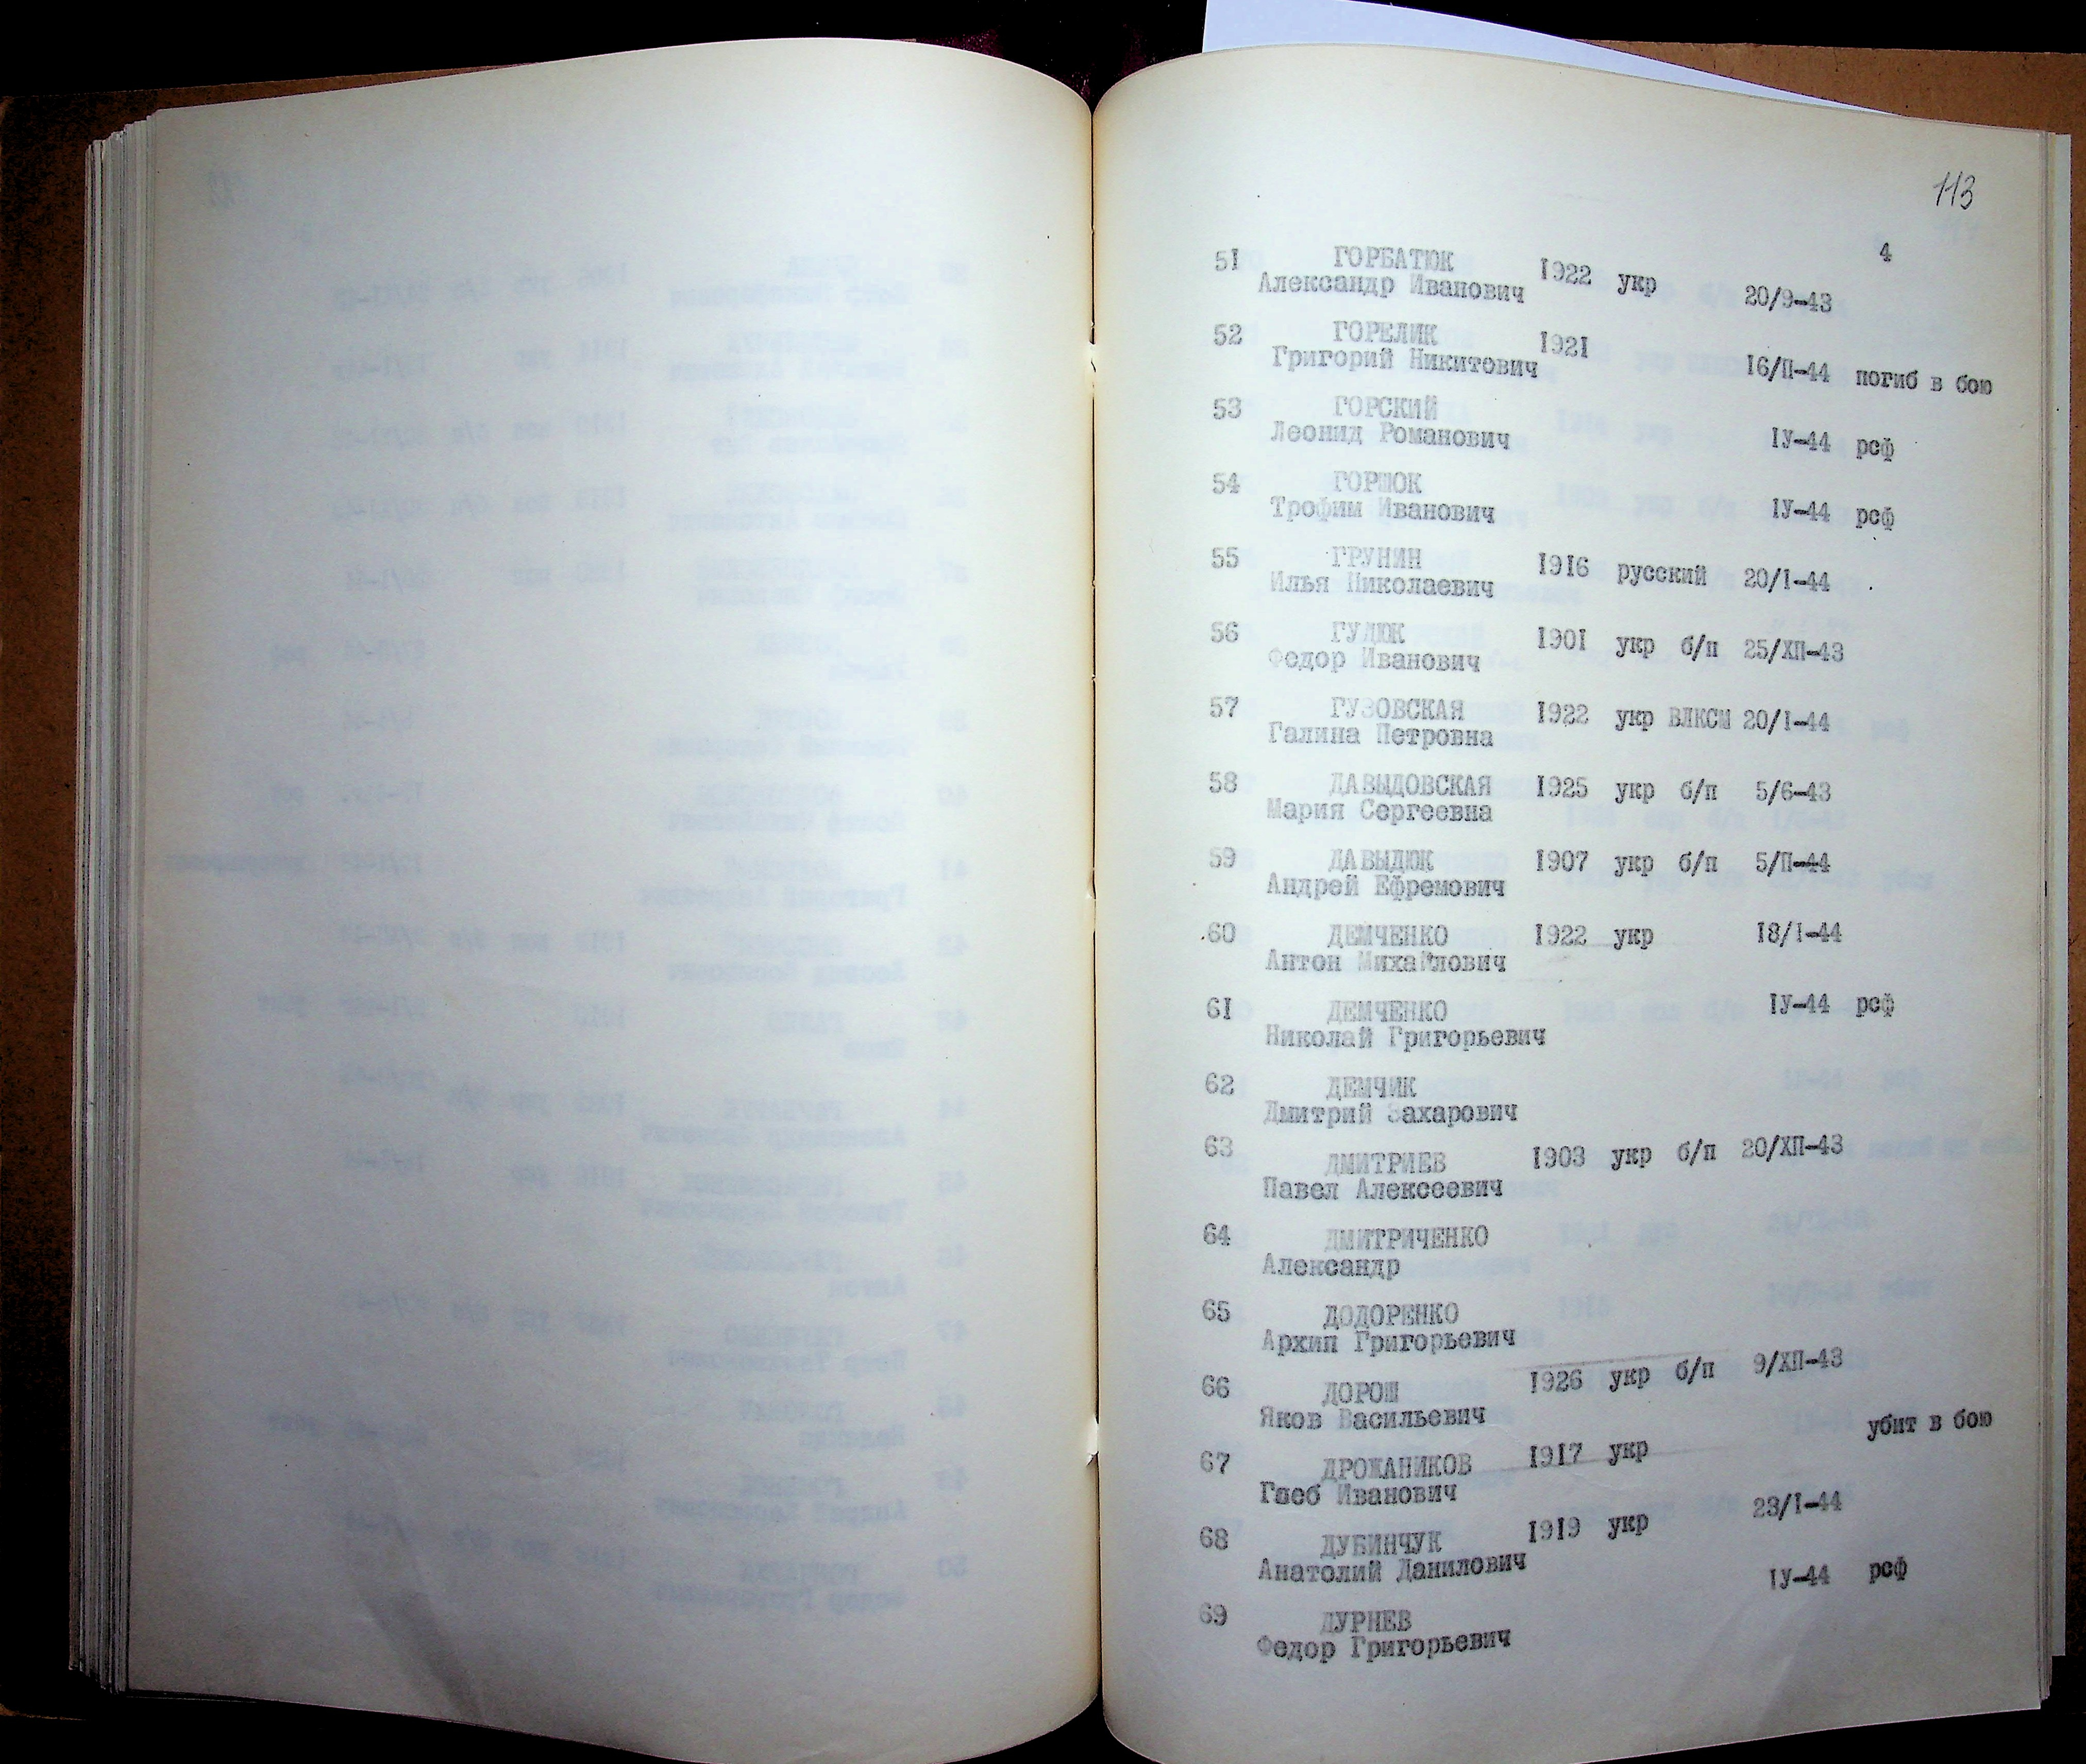 113
4
51 ГОРБАТЮК 1922 укр 20/9-43
Александр Иванович
52 ГОРЕЛИК 1921 16/П-44 погиб в бою
Григорий Никитович
53 ГОРСКИЙ
Леонид Романович 1У-44 рсф
54 ГОРШОК
Трофим Иванович 1У-44 рсф
55 ГРУНИН 1916 русский 20/1-44
Илья Николаевич
56 ГУДЮК 1901 укр б/п 25/ХП-43
Федор Иванович
57 ГУЗОВСКАЯ 1922 укр ВЛКСМ 20/1-44
Галина Петровна
58 ДАВЫДОВСКАЯ 1925 укр б/п 5/6-43
Мария Сергеевна
59 ДАВЫДЮК 1907 укр б/п 5/П-44
Андрей Ефремович
60 ДЕМЧЕНКО 1922 укр 18/1-44
Антон Михайлович
61 ДЕМЧЕНКО 1У-44 рсф
Николай Григорьевич
62 ДЕМЧИК
Дмитрий Захарович
63 ДМИТРИЕВ 1903 укр б/п 20/ХП-43
Павел Алексеевич
64 ДМИТРИЧЕНКО
Александр
65 ДОДОРЕНКО
Архип Григорьевич
66 ДОРОШ 1926 укр б/п 9/ХП-43
Яков Васильевич
67 ДРОЖАНИКОВ 1917 укр убит в бою
Глеб Иванович
68 ДУБИНЧУК 1919 укр 23/1-44
Анатолий Данилович
69 ДУРНЕВ 1У-44 рсф
Федор Григорьевич